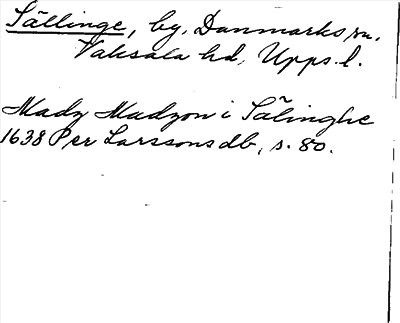 Sällinge, by, Danmarks sn.
Vaksala hd, Upps. l.
Madz Madzon i Sälinghe
1638 Per Larssons db, s. 80.